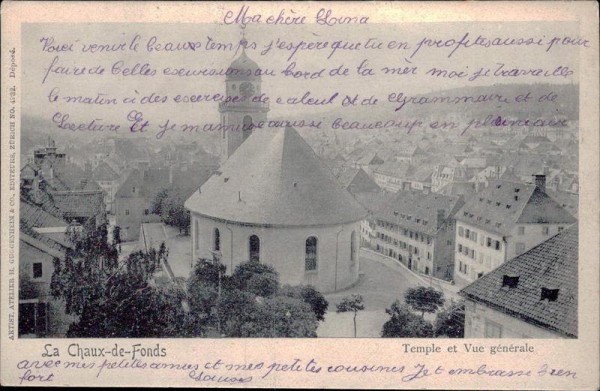 Ma chère Lina
Voici venir le beaux temps j'espère que tu en profites aussi pour
faire de belles escursions au bord de la mèr moi je travaille
le matin à des exercises de calcul et de Grammaire et de
Lecture Et je m'amuse aussi beaucoup en plein air
ARTIST. ATELIER H. GUGGENHEIM & CO., EDITEURS, ZÜRICH No. 4022. Déposé.
La Chaux-de-Fonds
Temple et Vue générale
avec mes petites amies et mes petites cousines Je t embrasse bien
fort